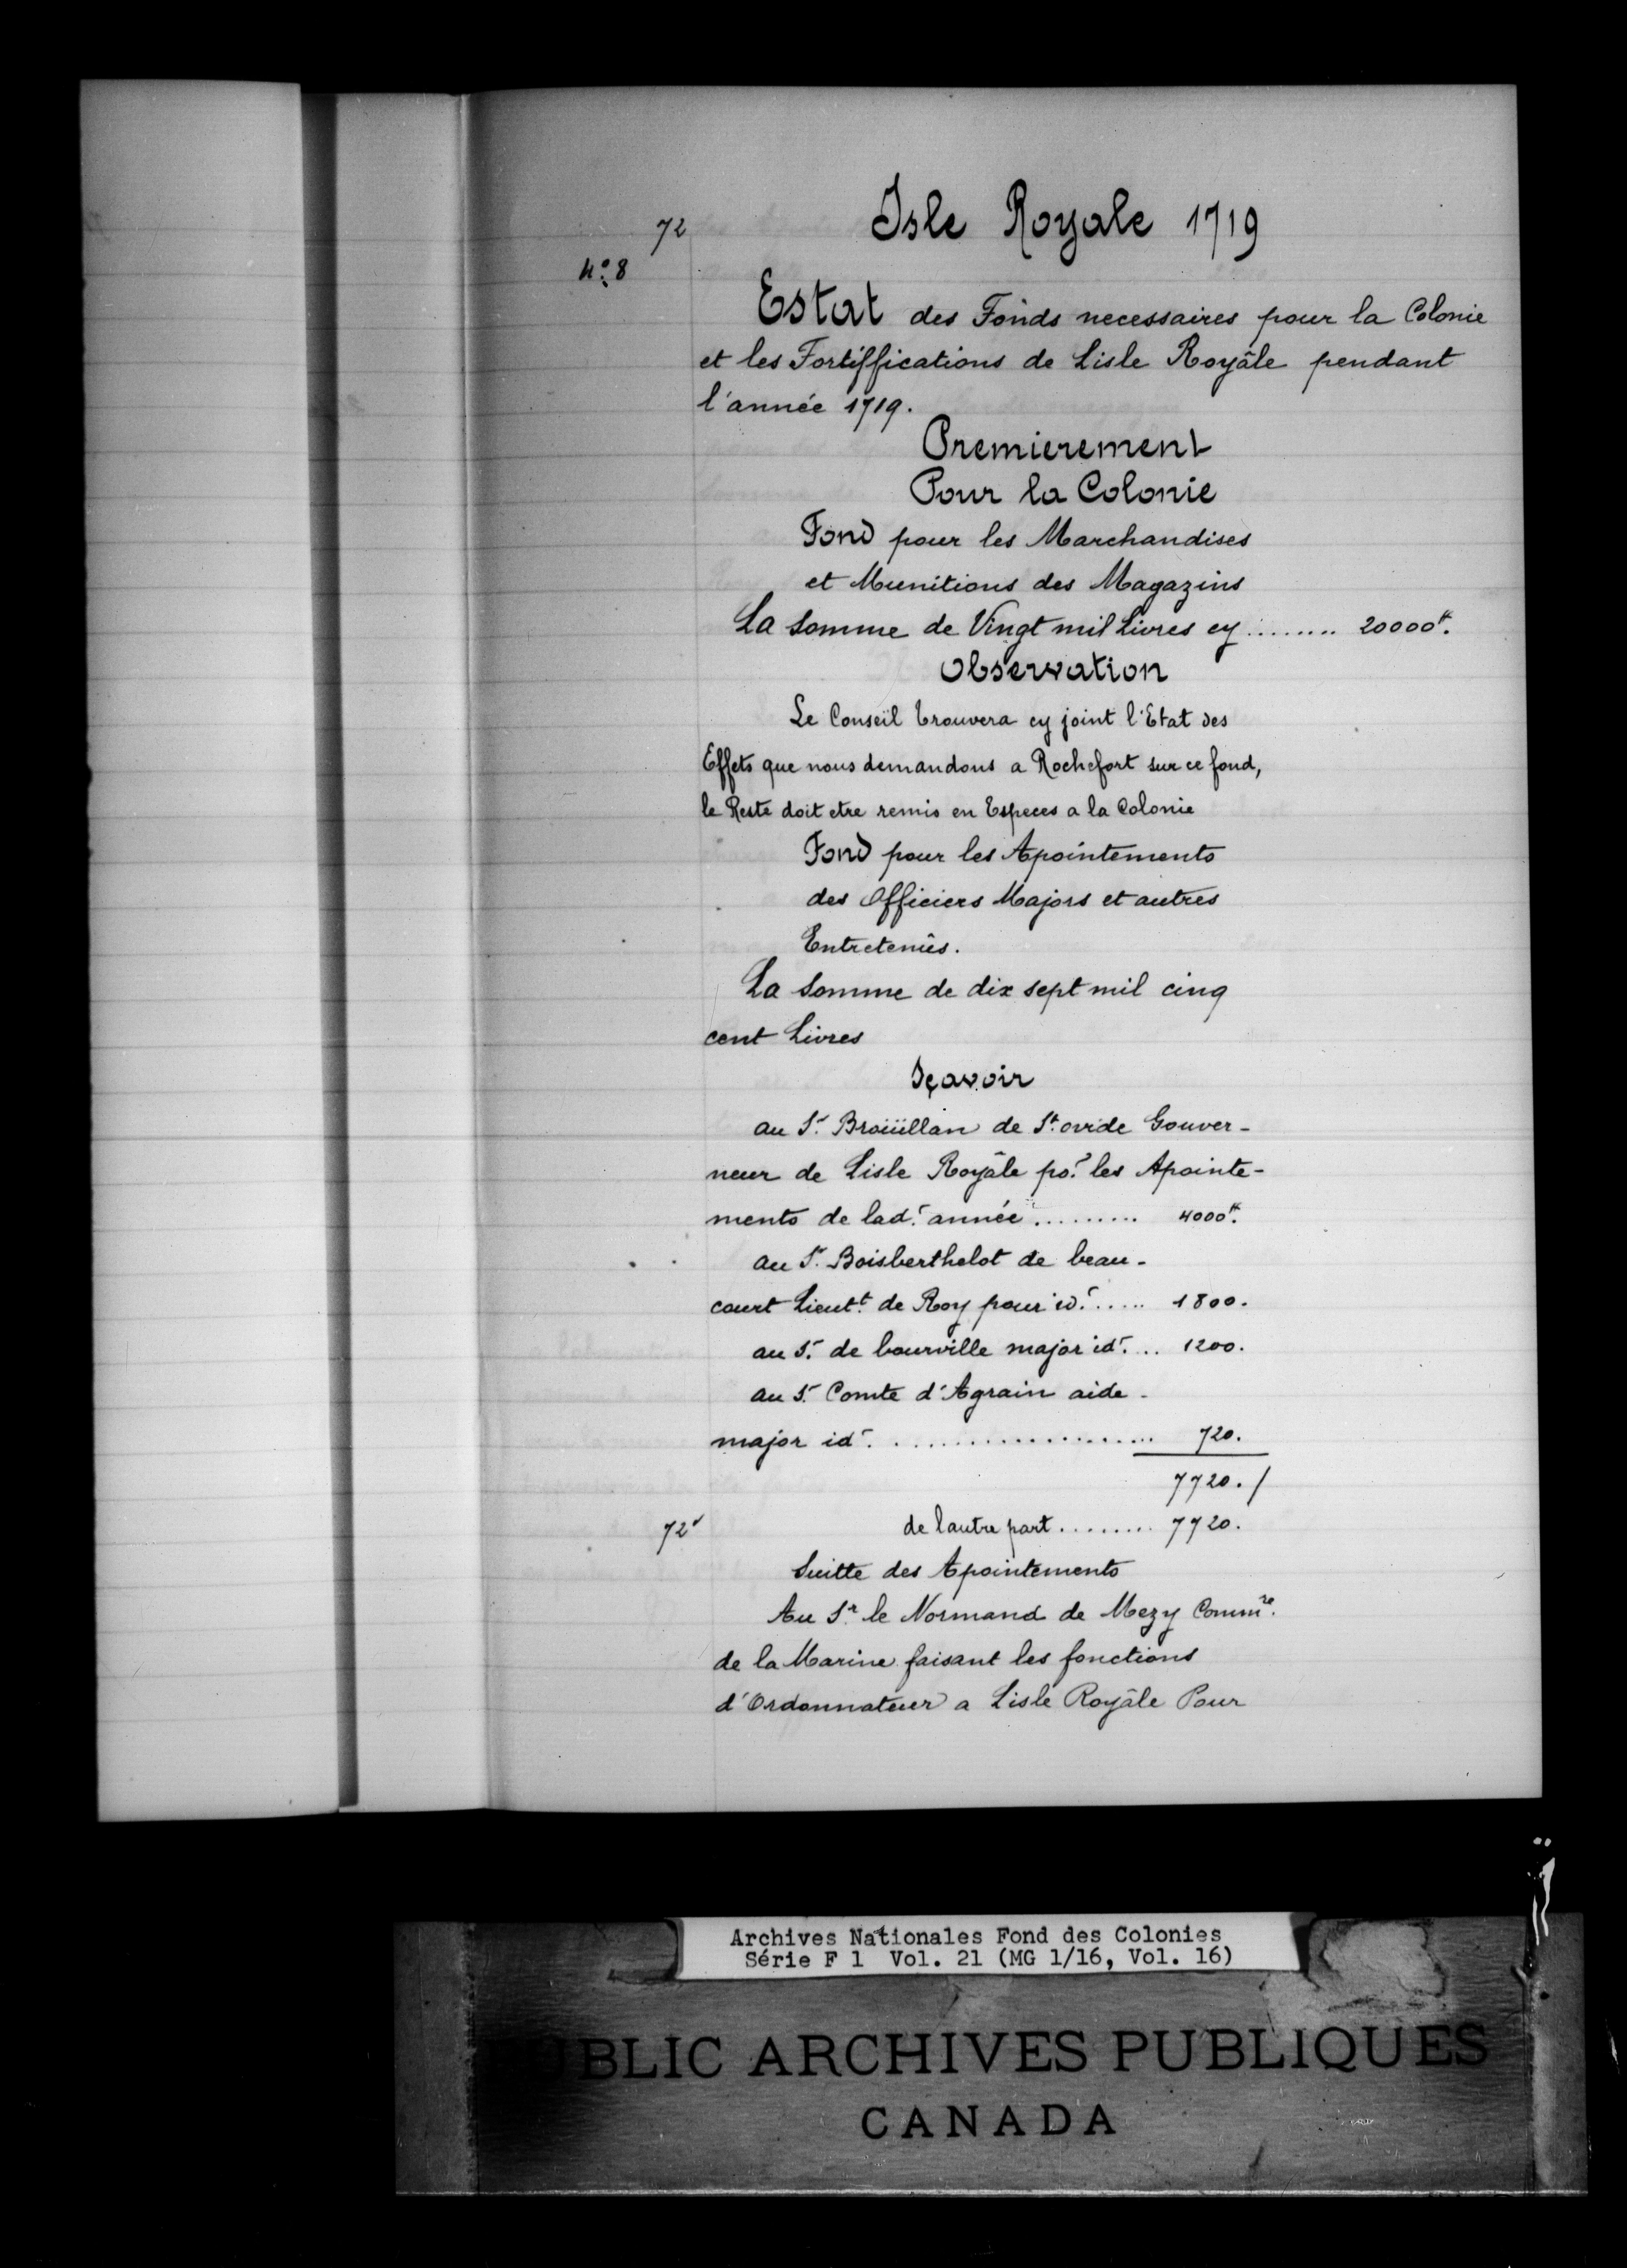 72
Isle Royale 1719
N.º 8
Estat des Fonds necessaires pour la Colonie
et les Fortiffications de Lisle Royâle pendant
l'année 1719.
Premierement
Pour la Colonie
Fond pour les Marchandises
et Munitions des Magazins
La Somme de Vingt mil Livres cy ........ 20000tt.
Observation
Le Conseïl trouvera cy joint l'Etat des
Effets que nous demandons a Rochefort sur ce fond,
le Reste doit etre remis en Especes a la Colonie
Fond pour les Apointements
des Officiers Majors et autres
Entretenûs.
La Somme de dix sept mil cinq
cent Livres
Sçavoir
au Sr. Broüillan de St. ovide Gouver-
neur de Lisle Royâle por. les Apointe-
ments de lad.e année ......... 4000tt.
au Sr. Boisberthelot de beau-
court Lieutt. de Roy pour id. ..... 1800.
au Sr. de bourville major id. ... 1200.
au Sr. Comte d'Agrain aide-
major id. ..................... 720.
7720. /
72v
de lautre part ........ 7720.
Suitte des Apointements
Au Sr. le Normand de Mezy Commre.
de la Marine faisant les fonctions
d'Ordonnateur a Lisle Royâle Pour
Archives Nationales Fond des Colonies
Série F 1 Vol. 21 (MG 1/16, Vol. 16)
PUBLIC ARCHIVES PUBLIQUES
CANADA